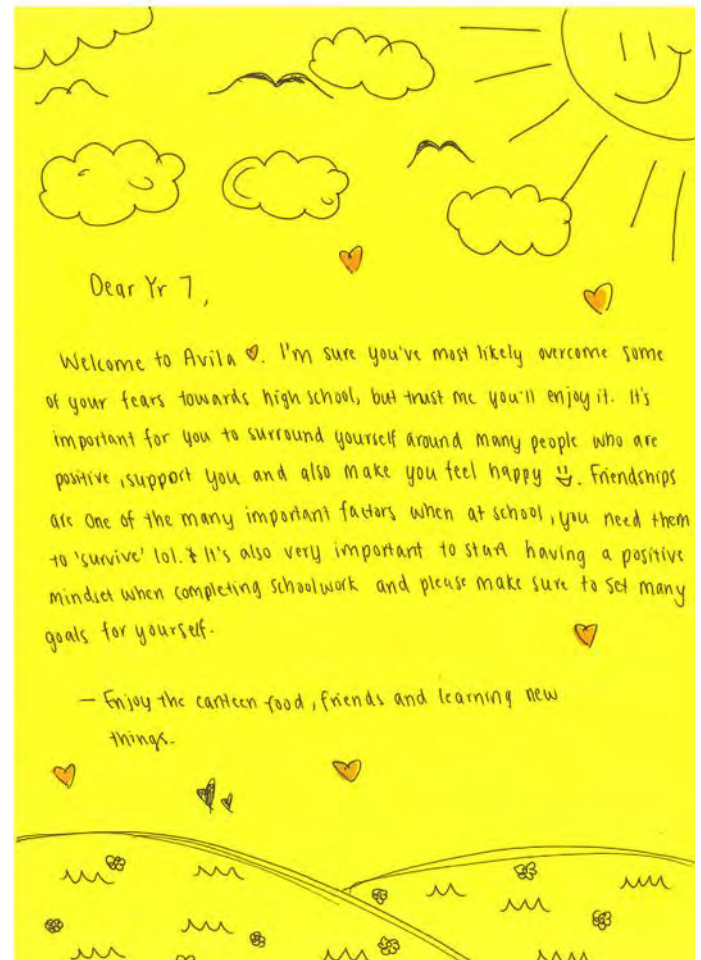 Dear Yr 7,
Welcome to Avila ♡. I'm sure you've most likely overcome some
of your fears towards high school, but trust me you'll enjoy it. It's
important for you to surround yourself around many people who are
positive, support you and also make you feel happy ü. Friendships
are one of the many important factors when at school, you need them
to 'survive' lol. It's also very important to start having a positive
mindset when completing schoolwork and please make sure to set many
goals for yourself.
— Enjoy the canteen food, friends and learning new
things.